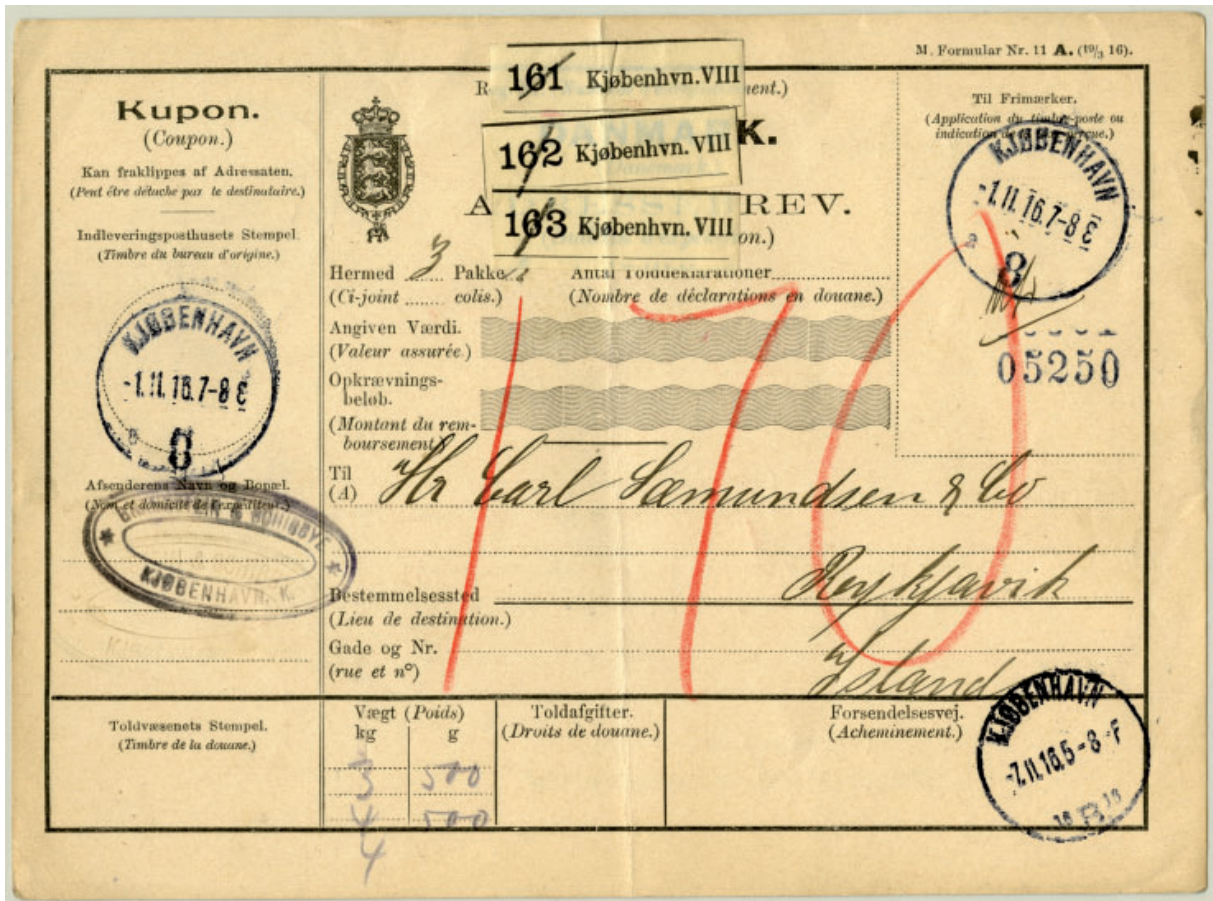 M. Formular Nr. 11 A. (19/3 16).
Kupon.
(Coupon.)
Kan fraklippes af Adressaten.
(Peut être détaché par le destinataire.)
Indleveringsposthusets Stempel.
(Timbre du bureau d'origine.)
KJØBENHAVN
-1.11.16.7-8 E
8
Afsenderens Navn og Bopæl.
(Nom et domicile de l'expéditeur.)
KJØBENHAVN. K.
161 Kjøbenhvn. VIII
162 Kjøbenhvn. VIII
K.
163 Kjøbenhvn. VIII
A REV.
on.)
Hermed 3 Pakke
(Ci-joint ...... colis.)
Antal Tolddeklarationer
(Nombre de déclarations en douane.)
Angiven Værdi.
(Valeur assurée.)
Opkrævnings-
beløb.
(Montant du rem-
boursement)
170
Til
(A) Hr Carl Sæmundsen & Co
Bestemmelsessted Reykjavik
(Lieu de destination.)
Gade og Nr.
(rue et nº) Island
Til Frimærker.
(Application du timbre-poste ou
indication de la taxe perçue.)
KJØBENHAVN
-1.11.16.7-8 E
8
05250
Toldvæsenets Stempel.
(Timbre de la douane.)
Vægt (Poids)
kg g
3 500
4 500
4
Toldafgifter.
(Droits de douane.)
Forsendelsesvej.
(Acheminement.)
KJØBENHAVN
-7.11.16.5-8 F
B